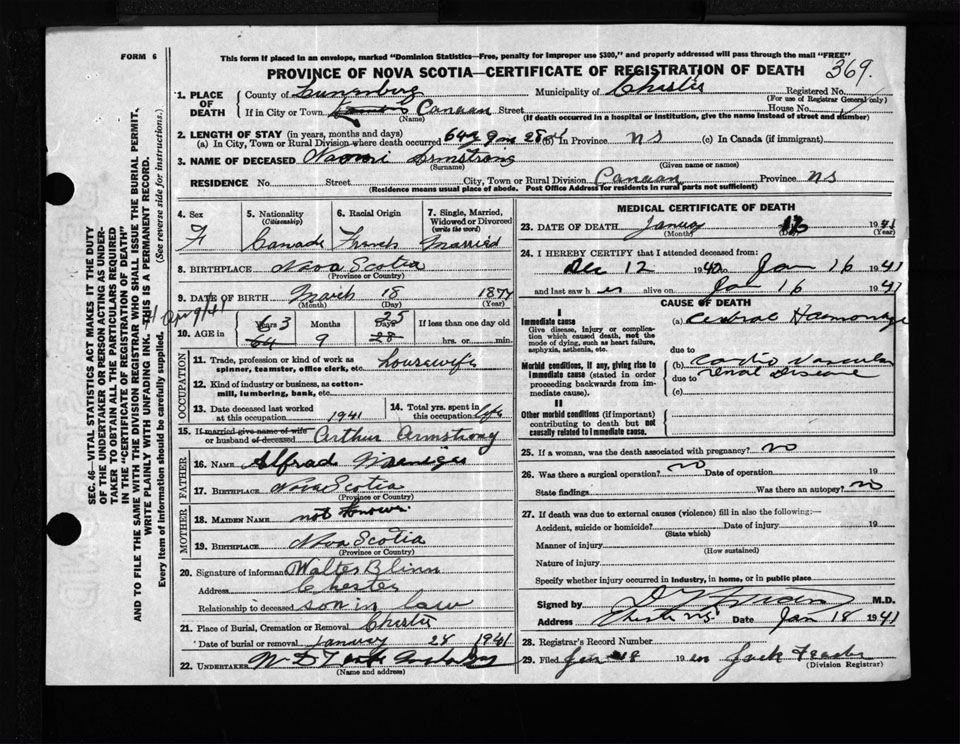 FORM 6
This form if placed in an envelope, marked "Dominion Statistics—Free, penalty for improper use $300," and properly addressed will pass through the mail "FREE"
PROVINCE OF NOVA SCOTIA—CERTIFICATE OF REGISTRATION OF DEATH
369.
1. PLACE OF DEATH
County of Lunenburg Municipality of Chester Registered No.
(For use of Registrar General only)
If in City or Town Canaan Street House No.
(Name) (If death occurred in a hospital or institution, give the name instead of street and number)
2. LENGTH OF STAY (in years, months and days)
(a) In City, Town or Rural Division where death occurred 64 y 9 m 28 d (b) In Province NS (c) In Canada (if immigrant)
3. NAME OF DECEASED Naomi Armstrong
(Surname) (Given name or names)
RESIDENCE No. Street City, Town or Rural Division Canaan Province NS
(Residence means usual place of abode. Post Office Address for residents in rural parts not sufficient)
4. Sex
F
5. Nationality
(Citizenship)
Canada
6. Racial Origin
French
7. Single, Married, Widowed or Divorced
(write the word)
Married
8. BIRTHPLACE Nova Scotia
(Province or Country)
9. DATE OF BIRTH March 18 1877
(Month) (Day) (Year)
10. AGE in
Years Months Days If less than one day old
63 9 25
64 28 hrs. or min.
OCCUPATION
11. Trade, profession or kind of work as spinner, teamster, office clerk, etc. housewife
12. Kind of industry or business, as cotton-mill, lumbering, bank, etc.
13. Date deceased last worked at this occupation 1941
14. Total yrs. spent in this occupation life
15. If married give name of wife or husband of deceased Arthur Armstrong
FATHER
16. NAME Alfred
17. BIRTHPLACE Nova Scotia
(Province or Country)
MOTHER
18. MAIDEN NAME not known
19. BIRTHPLACE Nova Scotia
(Province or Country)
20. Signature of informant Walter Blinn
Address Chester
Relationship to deceased son in law
21. Place of Burial, Cremation or Removal Chester
Date of burial or removal January 28 1941
22. UNDERTAKER
(Name and address)
MEDICAL CERTIFICATE OF DEATH
23. DATE OF DEATH January 1941
(Month) (Day) (Year)
24. I HEREBY CERTIFY that I attended deceased from:
Dec 12 1940 to Jan 16 1941
and last saw her alive on Jan 16 1941
CAUSE OF DEATH
I
Immediate cause
Give disease, injury or complication which caused death, not the mode of dying, such as heart failure, asphyxia, asthenia, etc.
(a) Cerebral Hemorrhage
due to
Morbid conditions, if any, giving rise to immediate cause (stated in order proceeding backwards from immediate cause).
(b) Cardio Vascular
due to renal Disease
(c)
II
Other morbid conditions (if important) contributing to death but not causally related to immediate cause.
25. If a woman, was the death associated with pregnancy? no
26. Was there a surgical operation? no Date of operation 19
State findings Was there an autopsy? no
27. If death was due to external causes (violence) fill in also the following:—
Accident, suicide or homicide? Date of injury 19
(State which)
Manner of injury
(How sustained)
Nature of injury
Specify whether injury occurred in industry, in home, or in public place
Signed by M.D.
Address Chester NS Date Jan 18 1941
28. Registrar's Record Number
29. Filed Jan 19 Jack
(Division Registrar)
SEC. 46—VITAL STATISTICS ACT MAKES IT THE DUTY
OF THE UNDERTAKER OR PERSON ACTING AS UNDER-
TAKER TO OBTAIN ALL THE PARTICULARS REQUIRED
IN THE "CERTIFICATE OF REGISTRATION OF DEATH"
AND TO FILE THE SAME WITH THE DIVISION REGISTRAR WHO SHALL ISSUE THE BURIAL PERMIT.
WRITE PLAINLY WITH UNFADING INK. THIS IS A PERMANENT RECORD.
Every item of information should be carefully supplied. (See reverse side for instructions.)